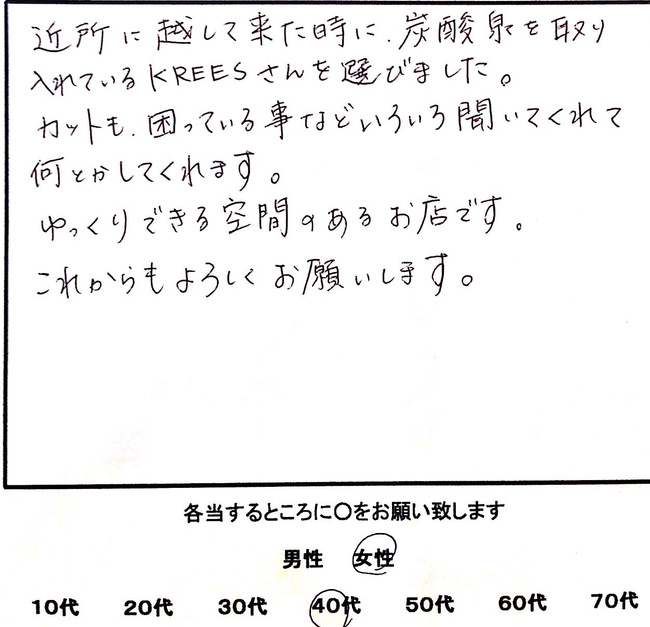 近所に越して来た時に、炭酸泉を取り
入れているKREESさんを選びました。
カットも、困っている事などいろいろ聞いてくれて
何とかしてくれます。
ゆっくりできる空間のあるお店です。
これからもよろしくお願いします。
各当するところに〇をお願い致します
男性 女性
10代 20代 30代 40代 50代 60代 70代